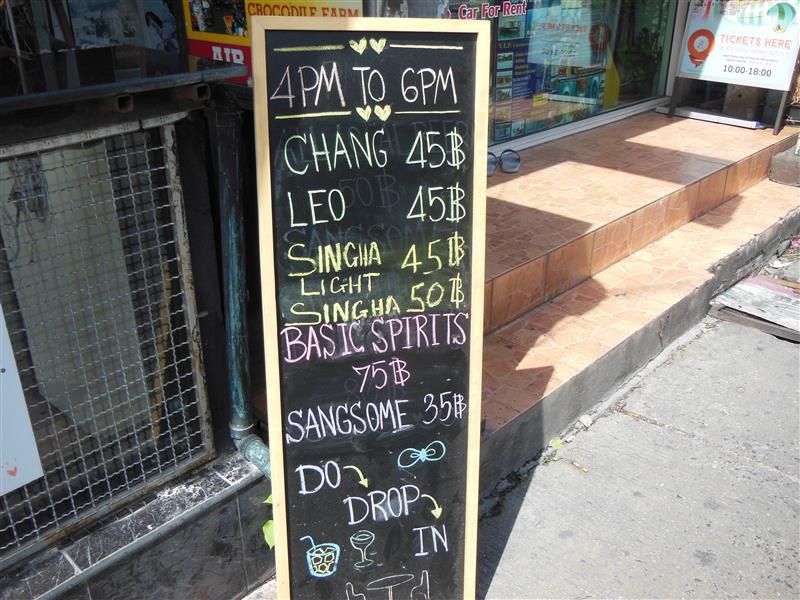 CROCODILE FARM
AIR
Car For Rent
TICKETS HERE
10:00-18:00
4PM TO 6PM
CHANG 45฿
LEO 45฿
SINGHA 45฿
LIGHT
SINGHA 50฿
BASIC SPIRITS
75฿
SANGSOME 35฿
DO
DROP
IN